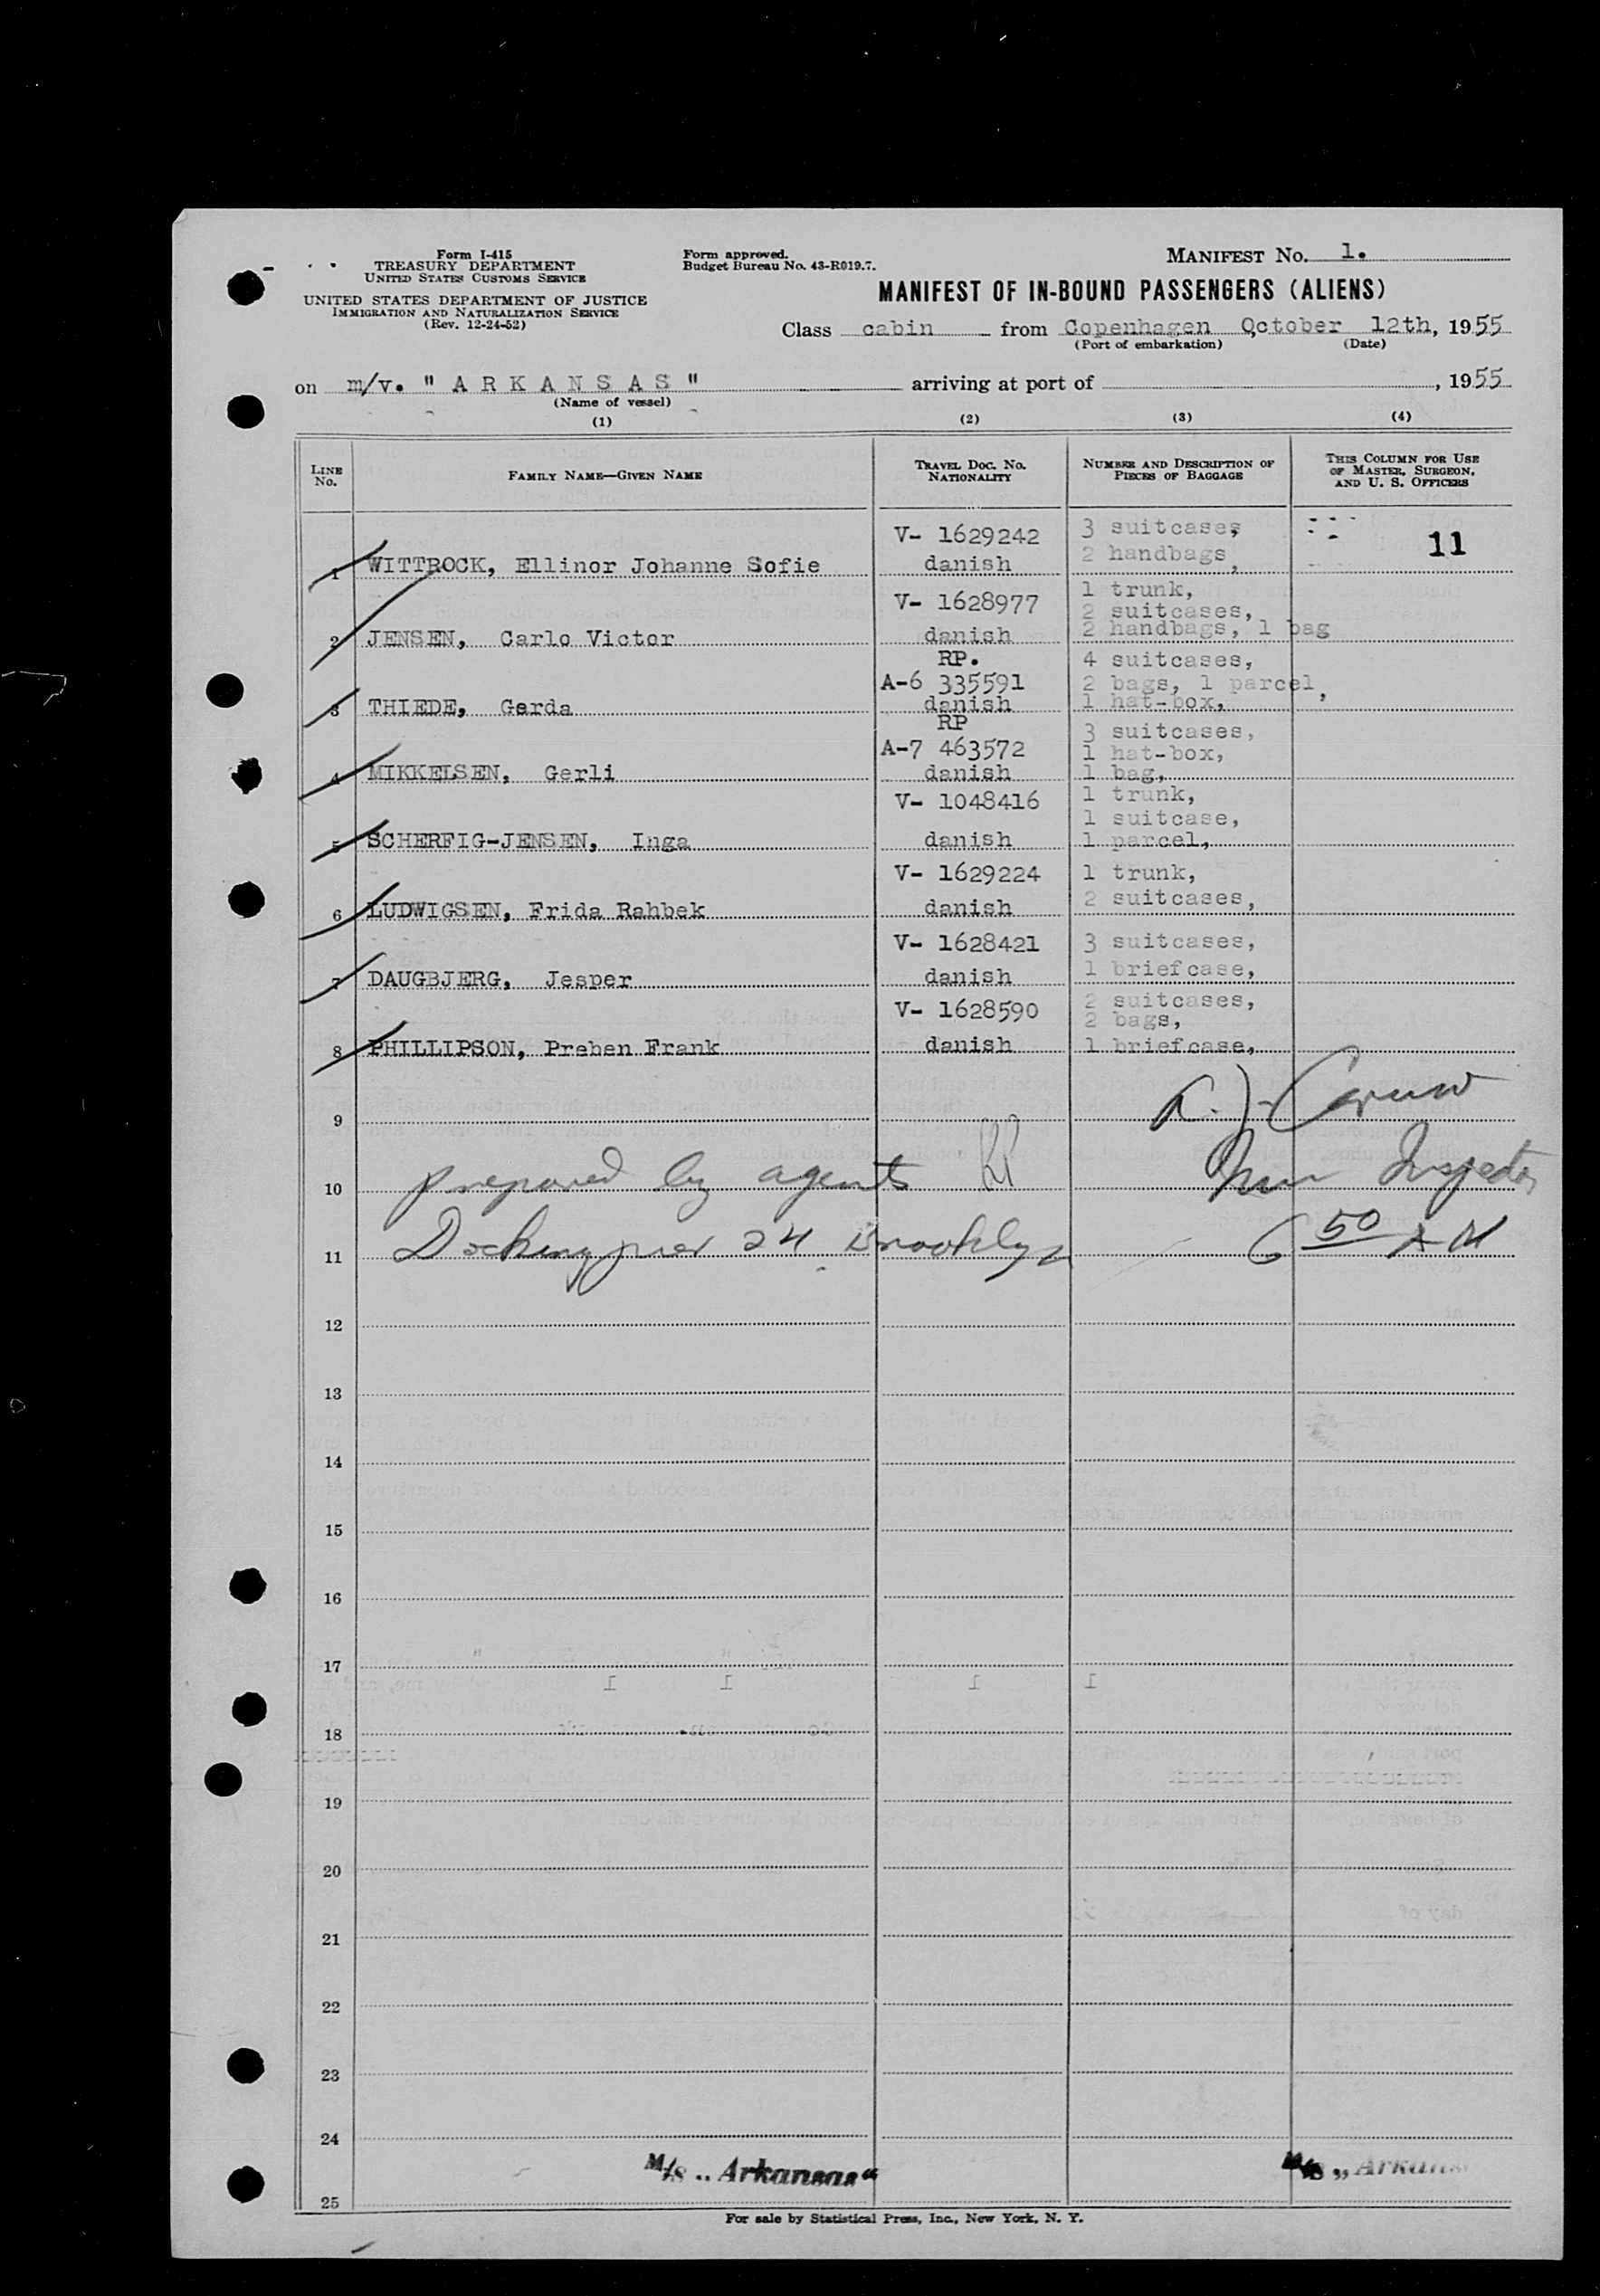 Form I-415
TREASURY DEPARTMENT
UNITED STATES CUSTOMS SERVICE
UNITED STATES DEPARTMENT OF JUSTICE
IMMIGRATION AND NATURALIZATION SERVICE
(Rev. 12-24-52)
Form approved.
Budget Bureau No. 43-R019.7.
MANIFEST No. 1.
MANIFEST OF IN-BOUND PASSENGERS (ALIENS)
Class cabin from Copenhagen October 12th, 1955
(Port of embarkation) (Date)
on m/v. " A R K A N S A S " arriving at port of , 1955
(Name of vessel)
(1) (2) (3) (4)
LINE No. FAMILY NAME—GIVEN NAME TRAVEL DOC. NO. NATIONALITY NUMBER AND DESCRIPTION OF PIECES OF BAGGAGE THIS COLUMN FOR USE OF MASTER, SURGEON, AND U. S. OFFICERS
V- 1629242 3 suitcases,
11
1 WITTROCK, Ellinor Johanne Sofie danish 2 handbags,
V- 1628977 1 trunk,
2 suitcases,
2 JENSEN, Carlo Victor danish 2 handbags, 1 bag
RP. 4 suitcases,
A-6 335591 2 bags, 1 parcel,
3 THIEDE, Gerda danish 1 hat-box,
RP 3 suitcases,
A-7 463572 1 hat-box,
4 MIKKELSEN, Gerli danish 1 bag,
V- 1048416 1 trunk,
1 suitcase,
5 SCHERFIG-JENSEN, Inga danish 1 parcel,
V- 1629224 1 trunk,
6 LUDWIGSEN, Frida Rahbek danish 2 suitcases,
V- 1628421 3 suitcases,
7 DAUGBJERG, Jesper danish 1 briefcase,
V- 1628590 2 suitcases,
2 bags,
8 PHILLIPSON, Preben Frank danish 1 briefcase,
9
10 prepared by agents Inspector
11 Docking pier 24 Brooklyn 6 50 AM
12
13
14
15
16
17
18
19
20
21
22
23
24
M/S „Arkansas" M/S „Arkans
25
For sale by Statistical Press, Inc., New York, N. Y.